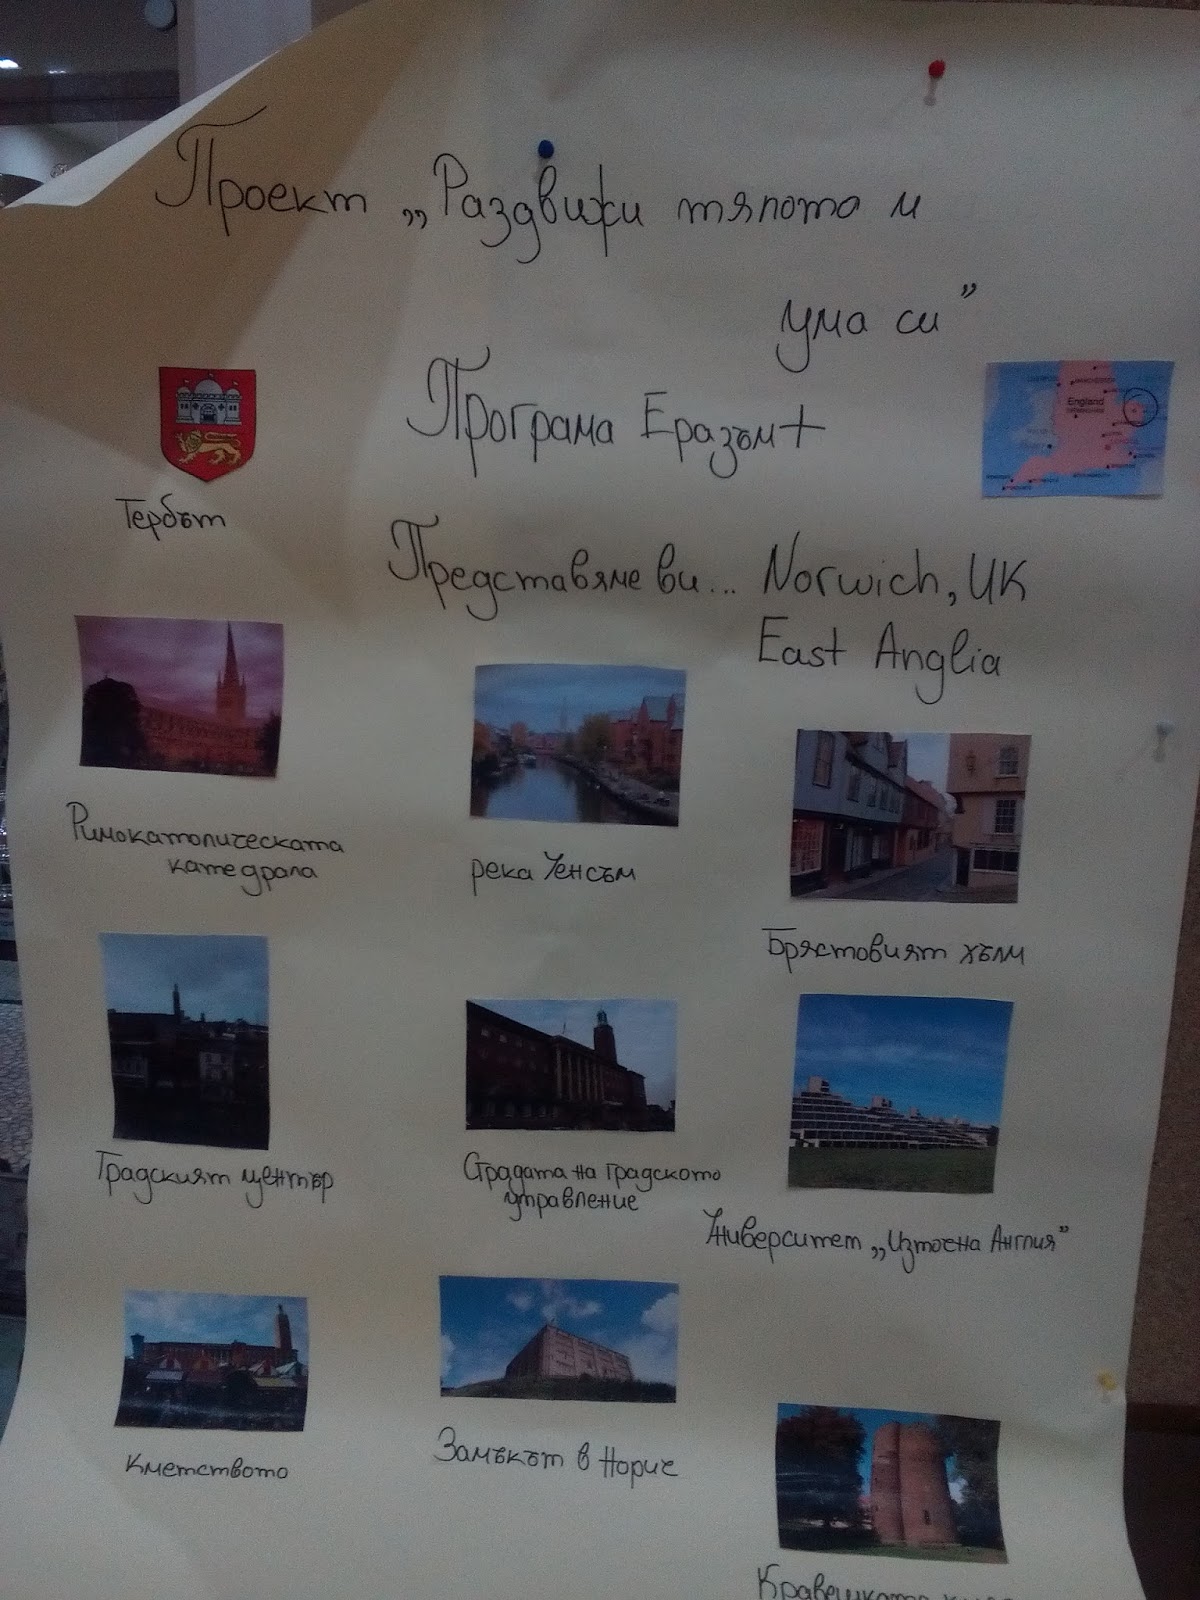 Проект „Раздвижи тялото и
ума си”
Програма Еразъм+
England
Гербът
Представяме ви... Norwich, UK
East Anglia
Римокатолическата
катедрала
река Уенсъм
Брястовият хълм
Градският център
Сградата на градското
управление
Университет „Източна Англия”
Кметството
Замъкът в Норич
Кравешката